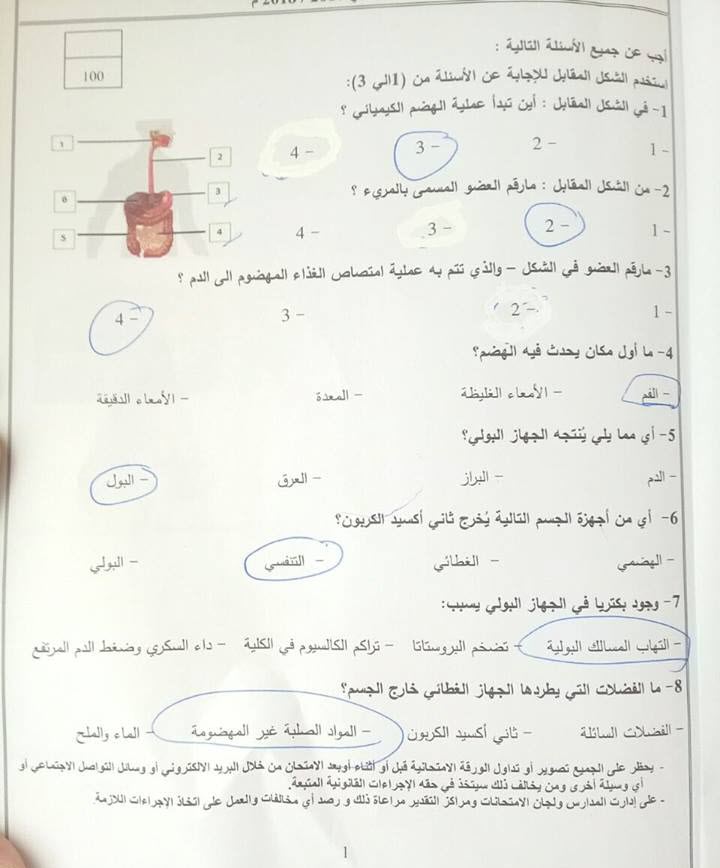 100
أجب عن جميع الأسئلة التالية :
استخدم الشكل المقابل للإجابة عن الأسئلة من (1الي 3):
1- في الشكل المقابل : أين تبدأ عملية الهضم الكيميائي ؟
1 - 2 - 3 - 4 -
1
2
3
6
4
5
2- من الشكل المقابل : مارقم العضو المسمى بالمريء ؟
1 - 2 - 3 - 4 -
3- مارقم العضو في الشكل – والذي تتم به عملية امتصاص الغذاء المهضوم الى الدم ؟
1 - 2 - 3 - 4 -
4- ما أول مكان يحدث فيه الهضم؟
- الفم - الأمعاء الغليظة - المعدة - الأمعاء الدقيقة
5- أي مما يلي يُنتجه الجهاز البولي؟
- الدم - البراز - العرق - البول
6- أي من أجهزة الجسم التالية يُخرج ثاني أكسيد الكربون؟
- الهضمي - الغطائي - التنفسي - البولي
7- وجود بكتريا في الجهاز البولي يسبب:
- التهاب المسالك البولية - تضخم البروستاتا - تراكم الكالسيوم في الكلية - داء السكري وضغط الدم المرتفع
8- ما الفضلات التي يطردها الجهاز الغطائي خارج الجسم؟
- الفضلات السائلة - ثاني أكسيد الكربون - المواد الصلبة غير المهضومة - الماء والملح
- يحظر على الجميع تصوير أو تداول الورقة الامتحانية قبل أو أثناء أوبعد الامتحان من خلال البريد الالكتروني أو وسائل التواصل الاجتماعي أو
أي وسيلة أخرى ومن يخالف ذلك سيتخذ في حقه الإجراءات القانونية المتبعة.
- على إدارت المدارس ولجان الامتحانات ومراكز التقدير مراعاة ذلك و رصد أي مخالفات والعمل على اتخاذ الإجراءات اللازمة.
1